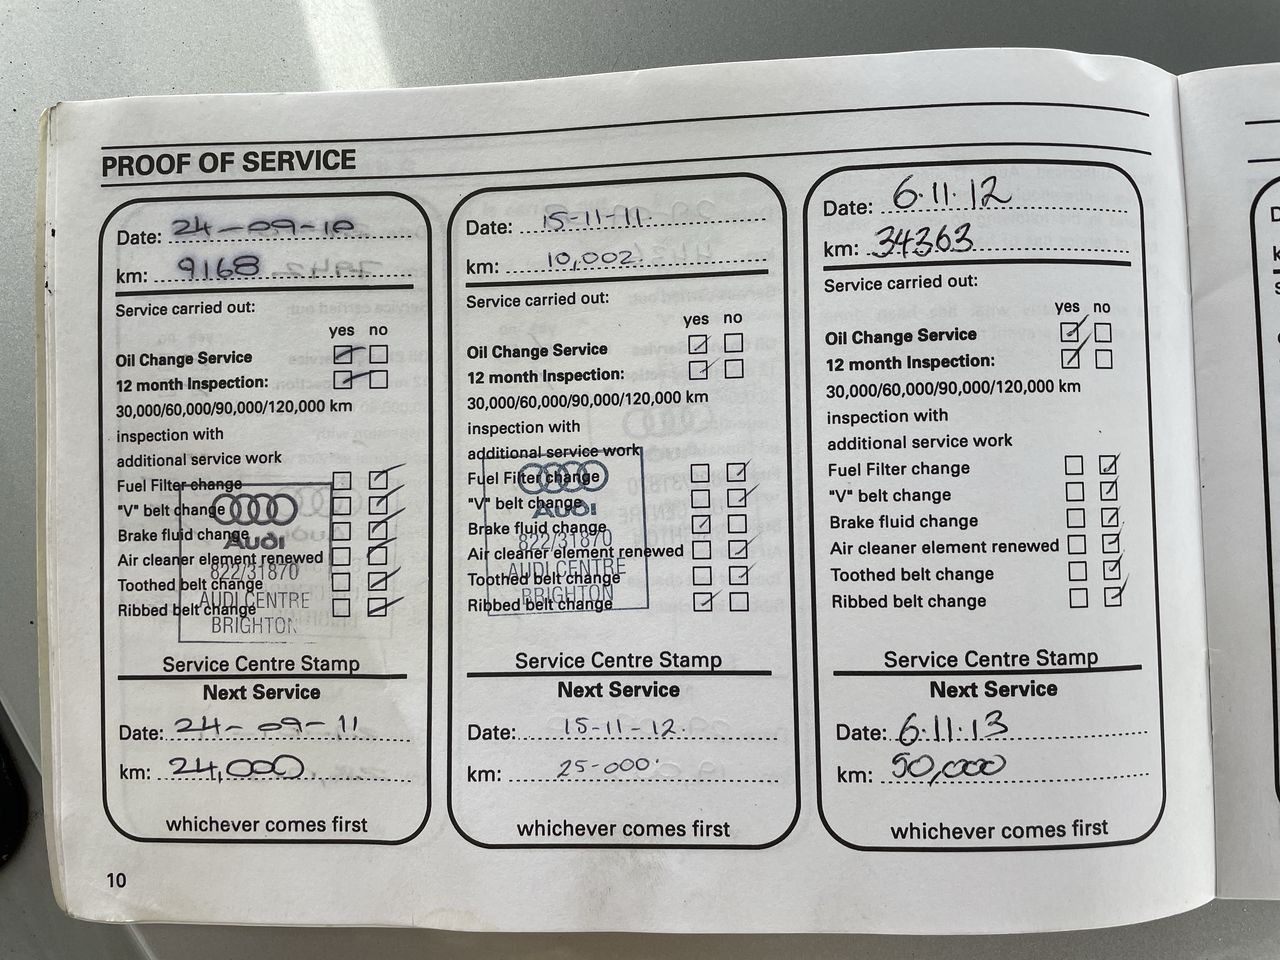 PROOF OF SERVICE
Date: 24-09-10
km: 9168
Service carried out:
yes no
Oil Change Service
12 month Inspection:
30,000/60,000/90,000/120,000 km
inspection with
additional service work
Fuel Filter change
"V" belt change
Brake fluid change
Air cleaner element renewed
Toothed belt change
Ribbed belt change
Audi
822/31870
AUDI CENTRE
BRIGHTON
Service Centre Stamp
Next Service
Date: 24-09-11
km: 24,000
whichever comes first
Date: 15-11-11.
km: 10,002
Service carried out:
yes no
Oil Change Service
12 month Inspection:
30,000/60,000/90,000/120,000 km
inspection with
additional service work
Fuel Filter change
"V" belt change
Brake fluid change
Air cleaner element renewed
Toothed belt change
Ribbed belt change
Audi
822/31870
AUDI CENTRE
BRIGHTON
Service Centre Stamp
Next Service
Date: 15-11-12.
km: 25-000
whichever comes first
Date: 6.11.12
km: 34363
Service carried out:
yes no
Oil Change Service
12 month Inspection:
30,000/60,000/90,000/120,000 km
inspection with
additional service work
Fuel Filter change
"V" belt change
Brake fluid change
Air cleaner element renewed
Toothed belt change
Ribbed belt change
Service Centre Stamp
Next Service
Date: 6.11.13
km: 50,000
whichever comes first
10